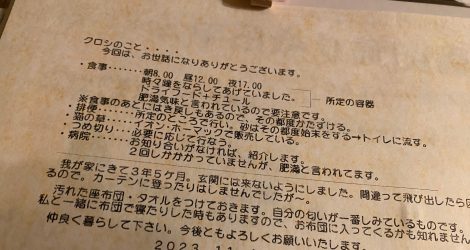 クロシのこと・・・・
今回は、お世話になりありがとうございます。
・食事・・・・・・・朝8.00 昼12.00 夜17.00
時々鐘をならしてあげていました。
ドライフード＋チュール
所定の容器
肥満気味と言われているので要注意です。
※食事のあとにはき戻しもあるので、その都度かたずける。
・排便・・・・・・・所定のところで行い、砂はその都度始末をする→トイレに流す。
・猫の草・・・・・・イオン・ホーマックで販売している。
・つめ切り・・・・必要に応じて行なう。
・病院・・・・・・・お知り合いがなければ、紹介します。
2回しかかかっていませんが、肥満と言われてます。
我が家にきて3年5ケ月。玄関には来ないようにしました。間違って飛び出したら
るので。カーテンに登ったりはしませんでしたが～。
汚れた座布団・タオルをつけておきます。自分の匂いが一番しみているものです。
私と一緒に布団で寝たりした時もありますので、お布団に入ってくるかも知れません
仲良く暮らして下さい。今後ともよろしくお願いいたします。
2023.11